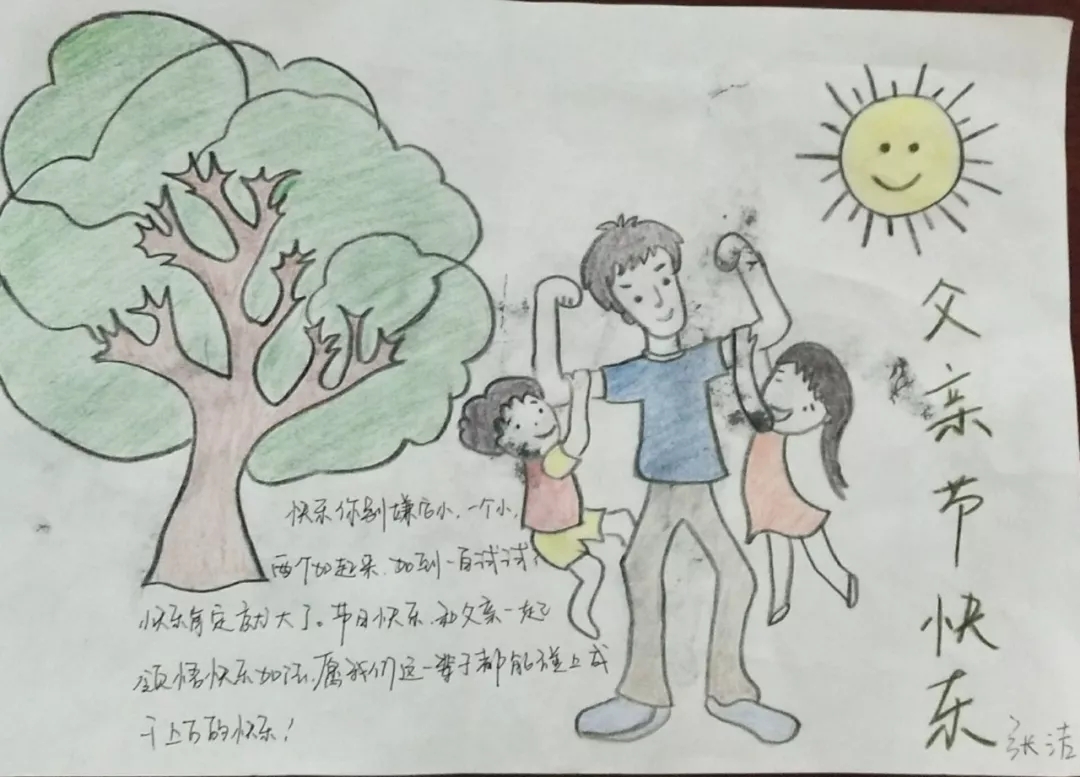 父亲节快乐
快乐你别嫌它小,一个小,
两个加起来,加到一百试试,
快乐肯定就大了。节日快乐,和父亲一起
领悟快乐加法,愿我们这一辈子都能碰上成
千上百的快乐!
张洁